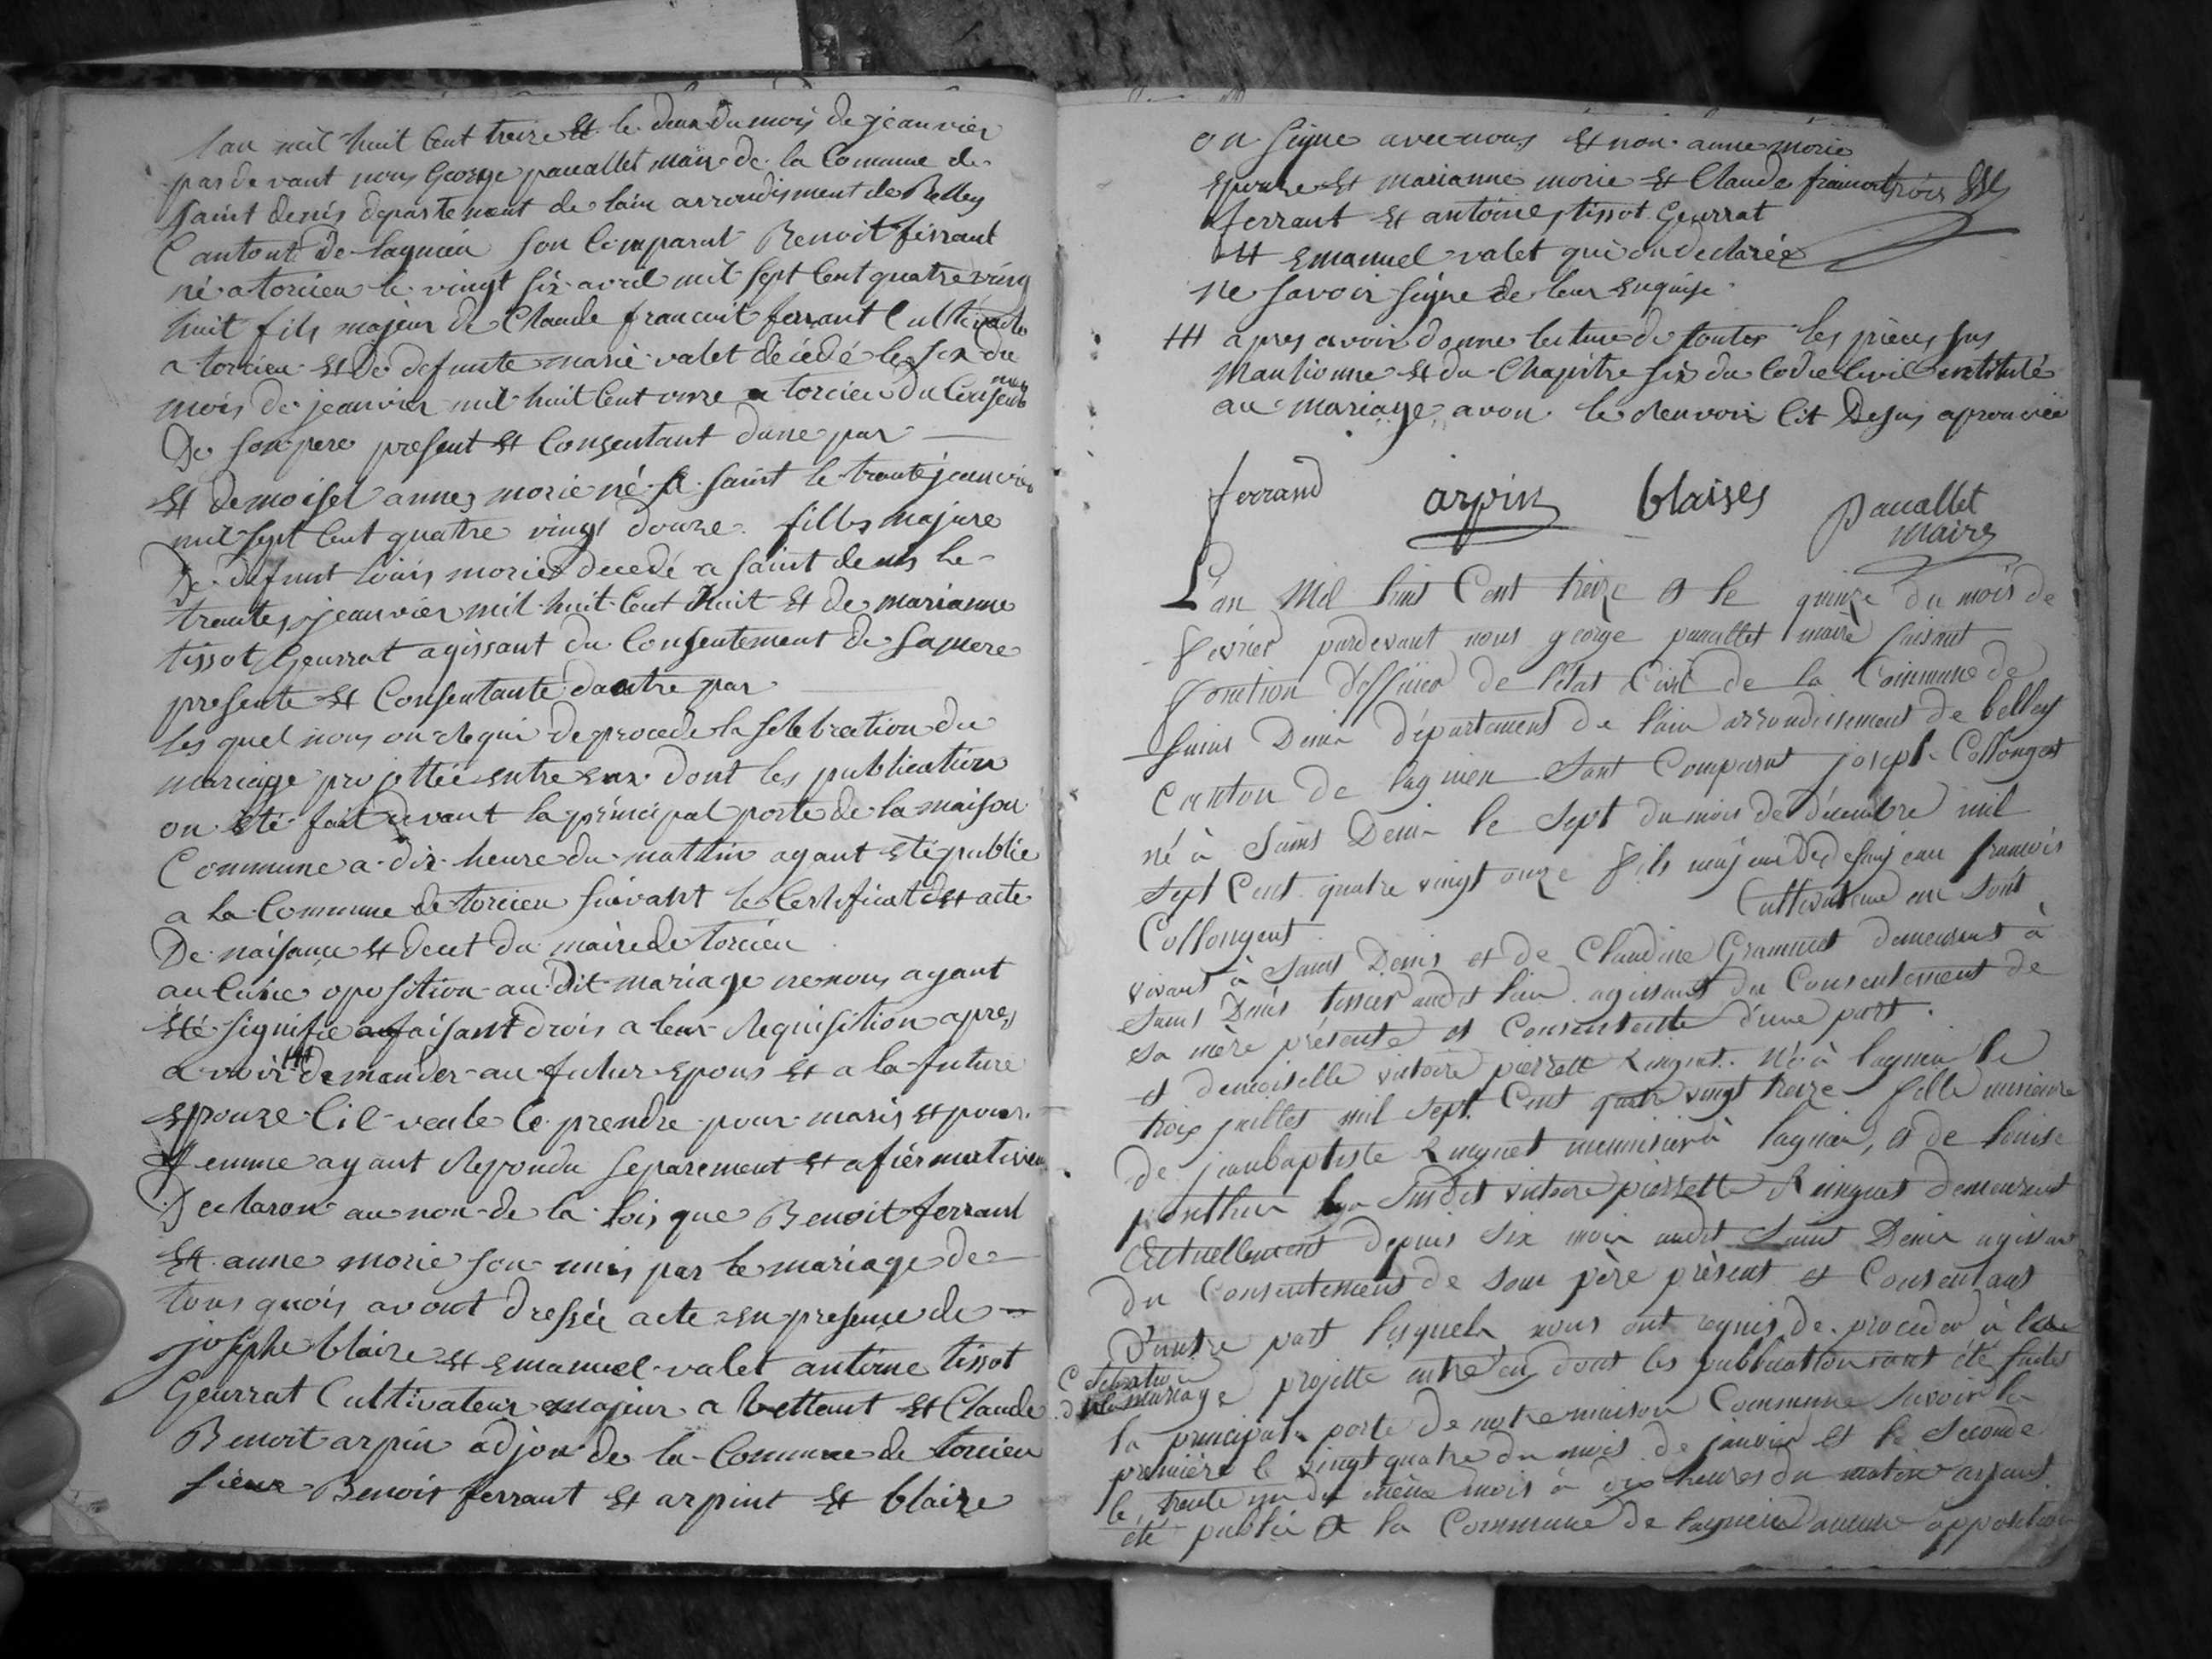 lan mil huit Cent treize et le deux du mois de jeanvier
par de vant nous George pauallet maire de la Comune de
saint denis departement de lain arrondisment de Belley
Cantont De lagnieu son Comparut Benoit ferrant
né a torcieu le vingt six avril mil sept Cent quatre ving
huit fils majeur de Claude francoit ferrant Cultivateur
a torcieu et De defunte marie valet décédé le six du
mois de jeanvier mil huit Cent onze a torcieu du Consentement
De son pere present et Consentant dune par
et demoisel anne morie né a saint le trante jeanvier
mil sept Cent quatre vingt douze fille majure
De defunt louis morie decedé a saint denis le
trante jeanvier mil huit Cent huit et de marianne
tissot Geurrat agissant du Consentement de sa mere
presente et Consentante dautre par
les quel nous on requi de procede la selebreation du
mariage projettée entre eux dont les publication
on été fait devant la principal porte de la maison
Commune a dix heure du mattin ayant eté publie
a la Commune de torcieu suivant le Certificat et acte
De naisance et decet du maire de torcieu
aucune oposition au dit mariage ne nous ayant
eté signifie faisant drois a leur requisition apres
avoir ttt demander au futur epous et a la future
epouze Cil veule Ce prendre pour maris et pour
femme ayant repondu separement et afiermativem
Declaron au non de la lois que Benoit ferrant
et anne morie son unis par le mariage de
tous quois avont dressée acte en presence de
josephe blaize et emanuel valet antoine tissot
Geurrat Cultivateur majeur a bettant et Claude
Benoit arpin adjon de la Commune de torcieu
sieur Benois ferrant et arpint et blaize
on signe avec nous et non anne morie
epouze et marianne morie et Claude francoit
ferrant et antoine tissot Geurrat
et emanuel valet qui on declarée
ne savoir signe de leur enquise
ttt apres avoir donne lecture de toutes les pieces sus
mantionne et du Chapitre six du Code Civil intitulé
au mariage avon le renvoir Cit Desus aprouvée
ferrand arpin blaises pauallet
maire
L'an Mil huit Cent treize et le quinze du mois de
fevrier pardevant nous george pauallet maire faisant
fonction d'officier de l'état Civil de la Commune de
Saint Denis département de l'ain arrondissement de belley
Canton de lagnieu Sont Comparut joseph Collonget
né à Saint Denis le Sept du mois de décembre mil
Sept Cent quatre vingt onze fils majeur de jean francois
Collonget Cultivateur en sont
vivant à Saint Denis et de Claudine Grammet demeurant à
Saint Denis tissier audit lieu agissant du Consentement de
sa mère présente et Consentante d'une part
et demoiselle victoire pierrette Ringuet née à lagnieu le
trois juillet mil Sept Cent quatre vingt treize fille mineure
de jeanbaptiste Ringuet menuisier à lagnieu, et de louise
ponthus la Susdit victoire pierrette Ringuet demeurant
Actuellement depuis Six mois audit Saint Denis agissant
du Consentement de Son père présent et Consentant
D'autre part lesquels nous ont requis de proceder à la
Celebration
du mariage projetté entre eux dont les publication ont été faites
la principale porte de notre maison Commune Savoir la
première le vingt quatre du mois de janvier et la seconde
le trente un du même mois à dix heures du matin ayant
été publié à la Commune de lagnieu aucune opposition